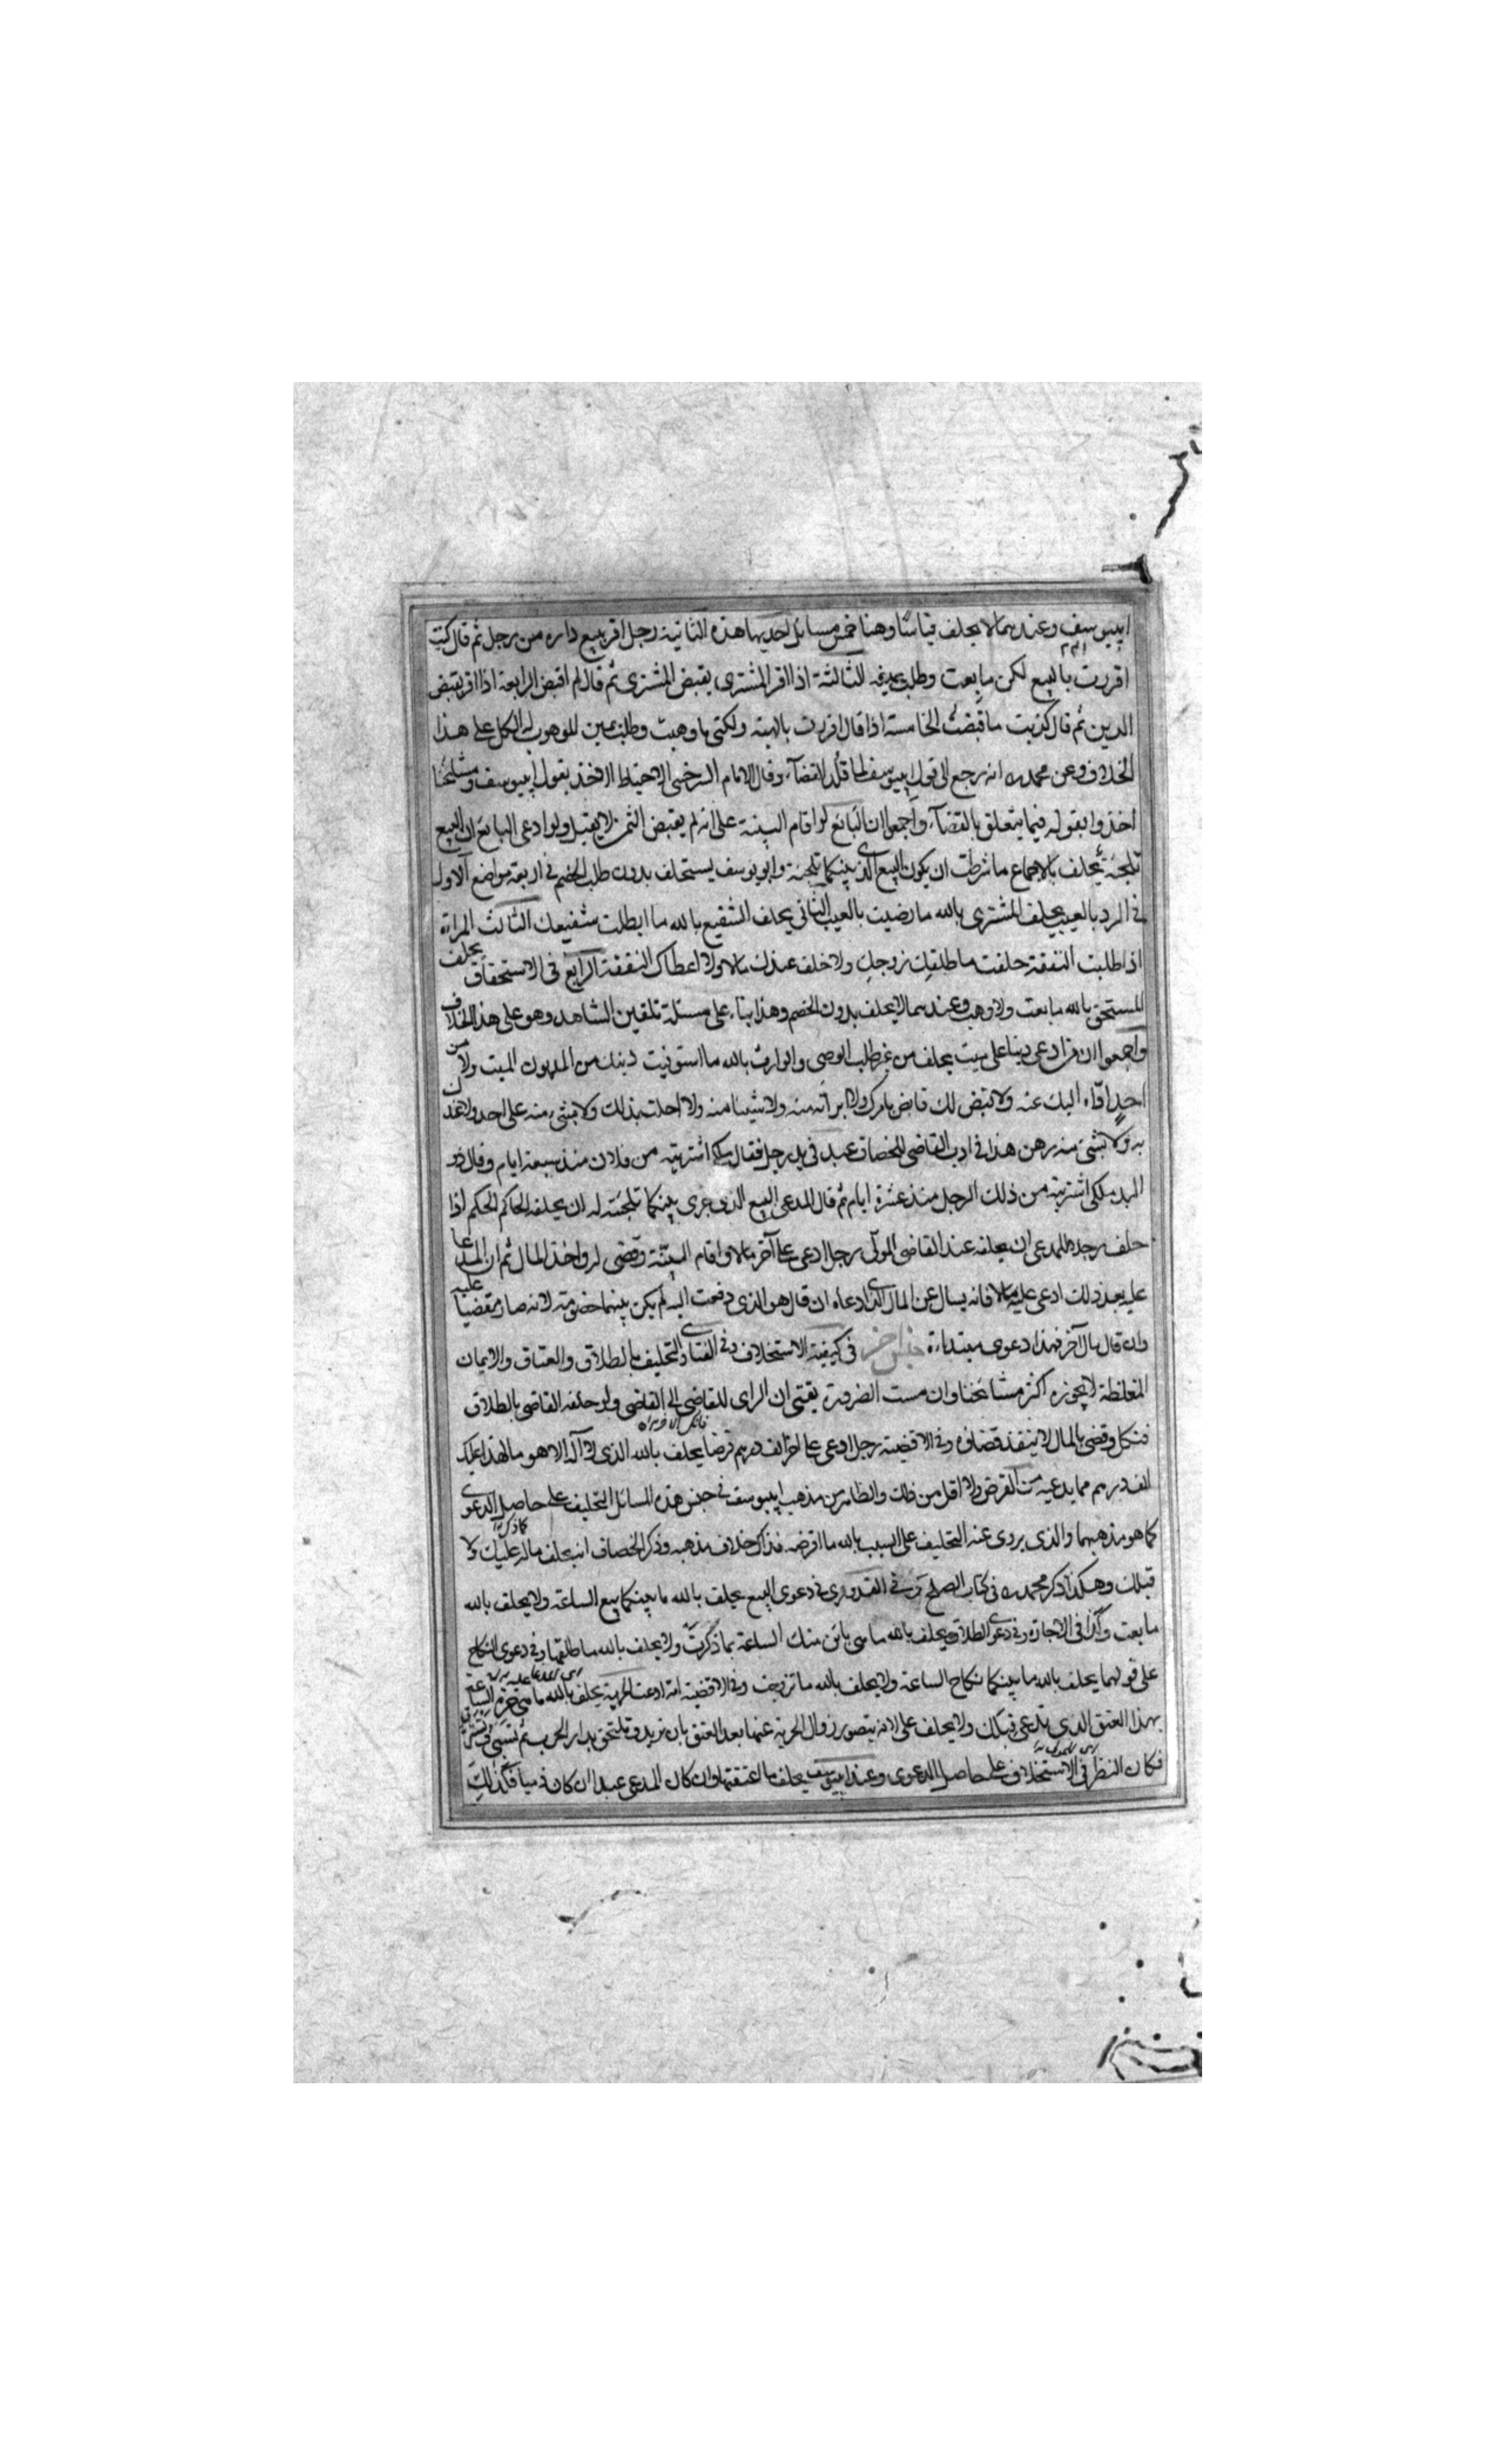 ابيوسف وعندهما لا يحلف قياسا وهنا خمس مسائل احديها هذه الثانية رجل اقر ببيع داره من رجل ثم قال كنت
اقررت بالبيع لكن ما بعت وطلب يمينه الثالثة اذا اقر المشترى بقبض المشترى ثم قال لم اقبض الرابعة اذا اقر بقبض
الدين ثم قال كذبت ما قبضت الخامسة اذا قال اقررت بالهبة ولكنى ما وهبت وطلب يمين الموهوب له الكل على هذا
الخلاف وعن محمد انه رجع الى قول ابيوسف لما قلد القضاء وقال الامام السرخسى الاحتياط الاخذ بقول ابيوسف ومشايخنا
اخذوا بقوله فيما يتعلق بالقضاء واجمعوا ان البائع لو اقام البينة على انه لم يقبض الثمن لا يقبل ولو ادعى البائع ان البيع
تلجئة يحلف بالاجماع ما شرطت ان يكون البيع الذى بينكما تلجئة وابو يوسف يستحلف بدون طلب الخصم فى اربعة مواضع الاول
فى الرد بالعيب يحلف المشترى بالله ما رضيت بالعيب الثانى يحلف الشفيع بالله ما ابطلت شفعتك الثالث المراة
اذا طلبت النفقة حلفت ما طلقك زوجك ولا خلف عندك مالا ولا اعطاك النفقة الرابع فى الاستحقاق يحلف
المستحق بالله ما بعت ولا وهبت وعندهما لا يحلف بدون الخصم وهذا بناء على مسئلة تلقين الشاهد وهو على هذا الخلاف
واجمعوا ان من ادعى دينا على ميت يحلف من غير طلب الوصى والوارث بالله ما استوفيت دينك من المديون الميت ولا من
احد اداه اليك عنه ولا قبض لك قابض بامرك ولا ابراته منه ولا شيئا منه ولا احلت بذلك ولا بشئ منه على احد ولا عندك
به ولا بشئ منه رهن هذا فى ادب القاضى للخصاف عبد فى يد رجل فقال ملكى اشتريته من فلان منذ سبعة ايام وقال ذو
اليد ملكى اشتريته من ذلك الرجل منذ عشرة ايام ثم قال للمدعى البيع الذى جرى بينكما تلجئة له ان يحلفه الحاكم الحكم اذا
حلف رجلا للمدعى ان يحلفه عند القاضى المولى رجل ادعى على آخر مالا واقام البينة وقضى له واخذ المال ثم ان المدعا
عليه بعد ذلك ادعى عليه مالا فانه يسال عن المال الذى ادعاه ان قال هو الذى دفعت اليه لم يكن بينهما خصومة لانه صار مقضيا عليه
وان قال مال آخر فهذا دعوى مبتداءة جنس آخر فى كيفية الاستحلاف وفى الفتاوى التحليف بالطلاق والعتاق والايمان
المغلظة لا يجوزه اكثر مشايخنا وان مست الضرورة يفتى ان الراى للقاضى الى القاضى ولو حلفه القاضى بالطلاق
فنكل وقضى بالمال لا ينفذ قضاؤه وفى الاقضية رجل ادعى على آخر الف درهم قرضا يحلف بالله الذى لا آله الا هو ما لهذا عليك
الف درهم مما يدعيه من القرض ولا اقل من ذلك والظاهر من مذهب ابيوسف فى جنس هذه المسائل التحليف على حاصل الدعوى
كما هو مذهبهما والذى يروى عنه التحليف على السبب بالله ما اقرضه فذاك خلاف مذهبه وذكر الخصاف انه يحلف ماله عليك ولا
قبلك وهكذا ذكر محمد فى كتاب الصلح وفى القدورى فى دعوى البيع يحلف بالله ما بينكما بيع الساعة ولا يحلف بالله
ما بعت وكذا فى الاجارة وفى دعوى الطلاق يحلف بالله ما هى بائن منك الساعة بما ذكرت ولا يحلف بالله ما طلقها وفى دعوى النكاح
على قولهما يحلف بالله ما بينكما نكاح الساعة ولا يحلف بالله ما تزوجت وفى الاقضية امة ادعت الحرية يحلف بالله ما هى حرة الساعة
بهذا العتق الذى تدعى قبلك ولا يحلف على لانه يتصور زوال الحرية عنها بعد العتق بان ترتد وتلتحق بدار الحرب ثم تسبى
فكان النظر فى الاستحلاف على حاصل الدعوى وعند ابيوسف يحلف ما اعتقتها وان كان المدعى عبدا ان كان ذميا فكذلك